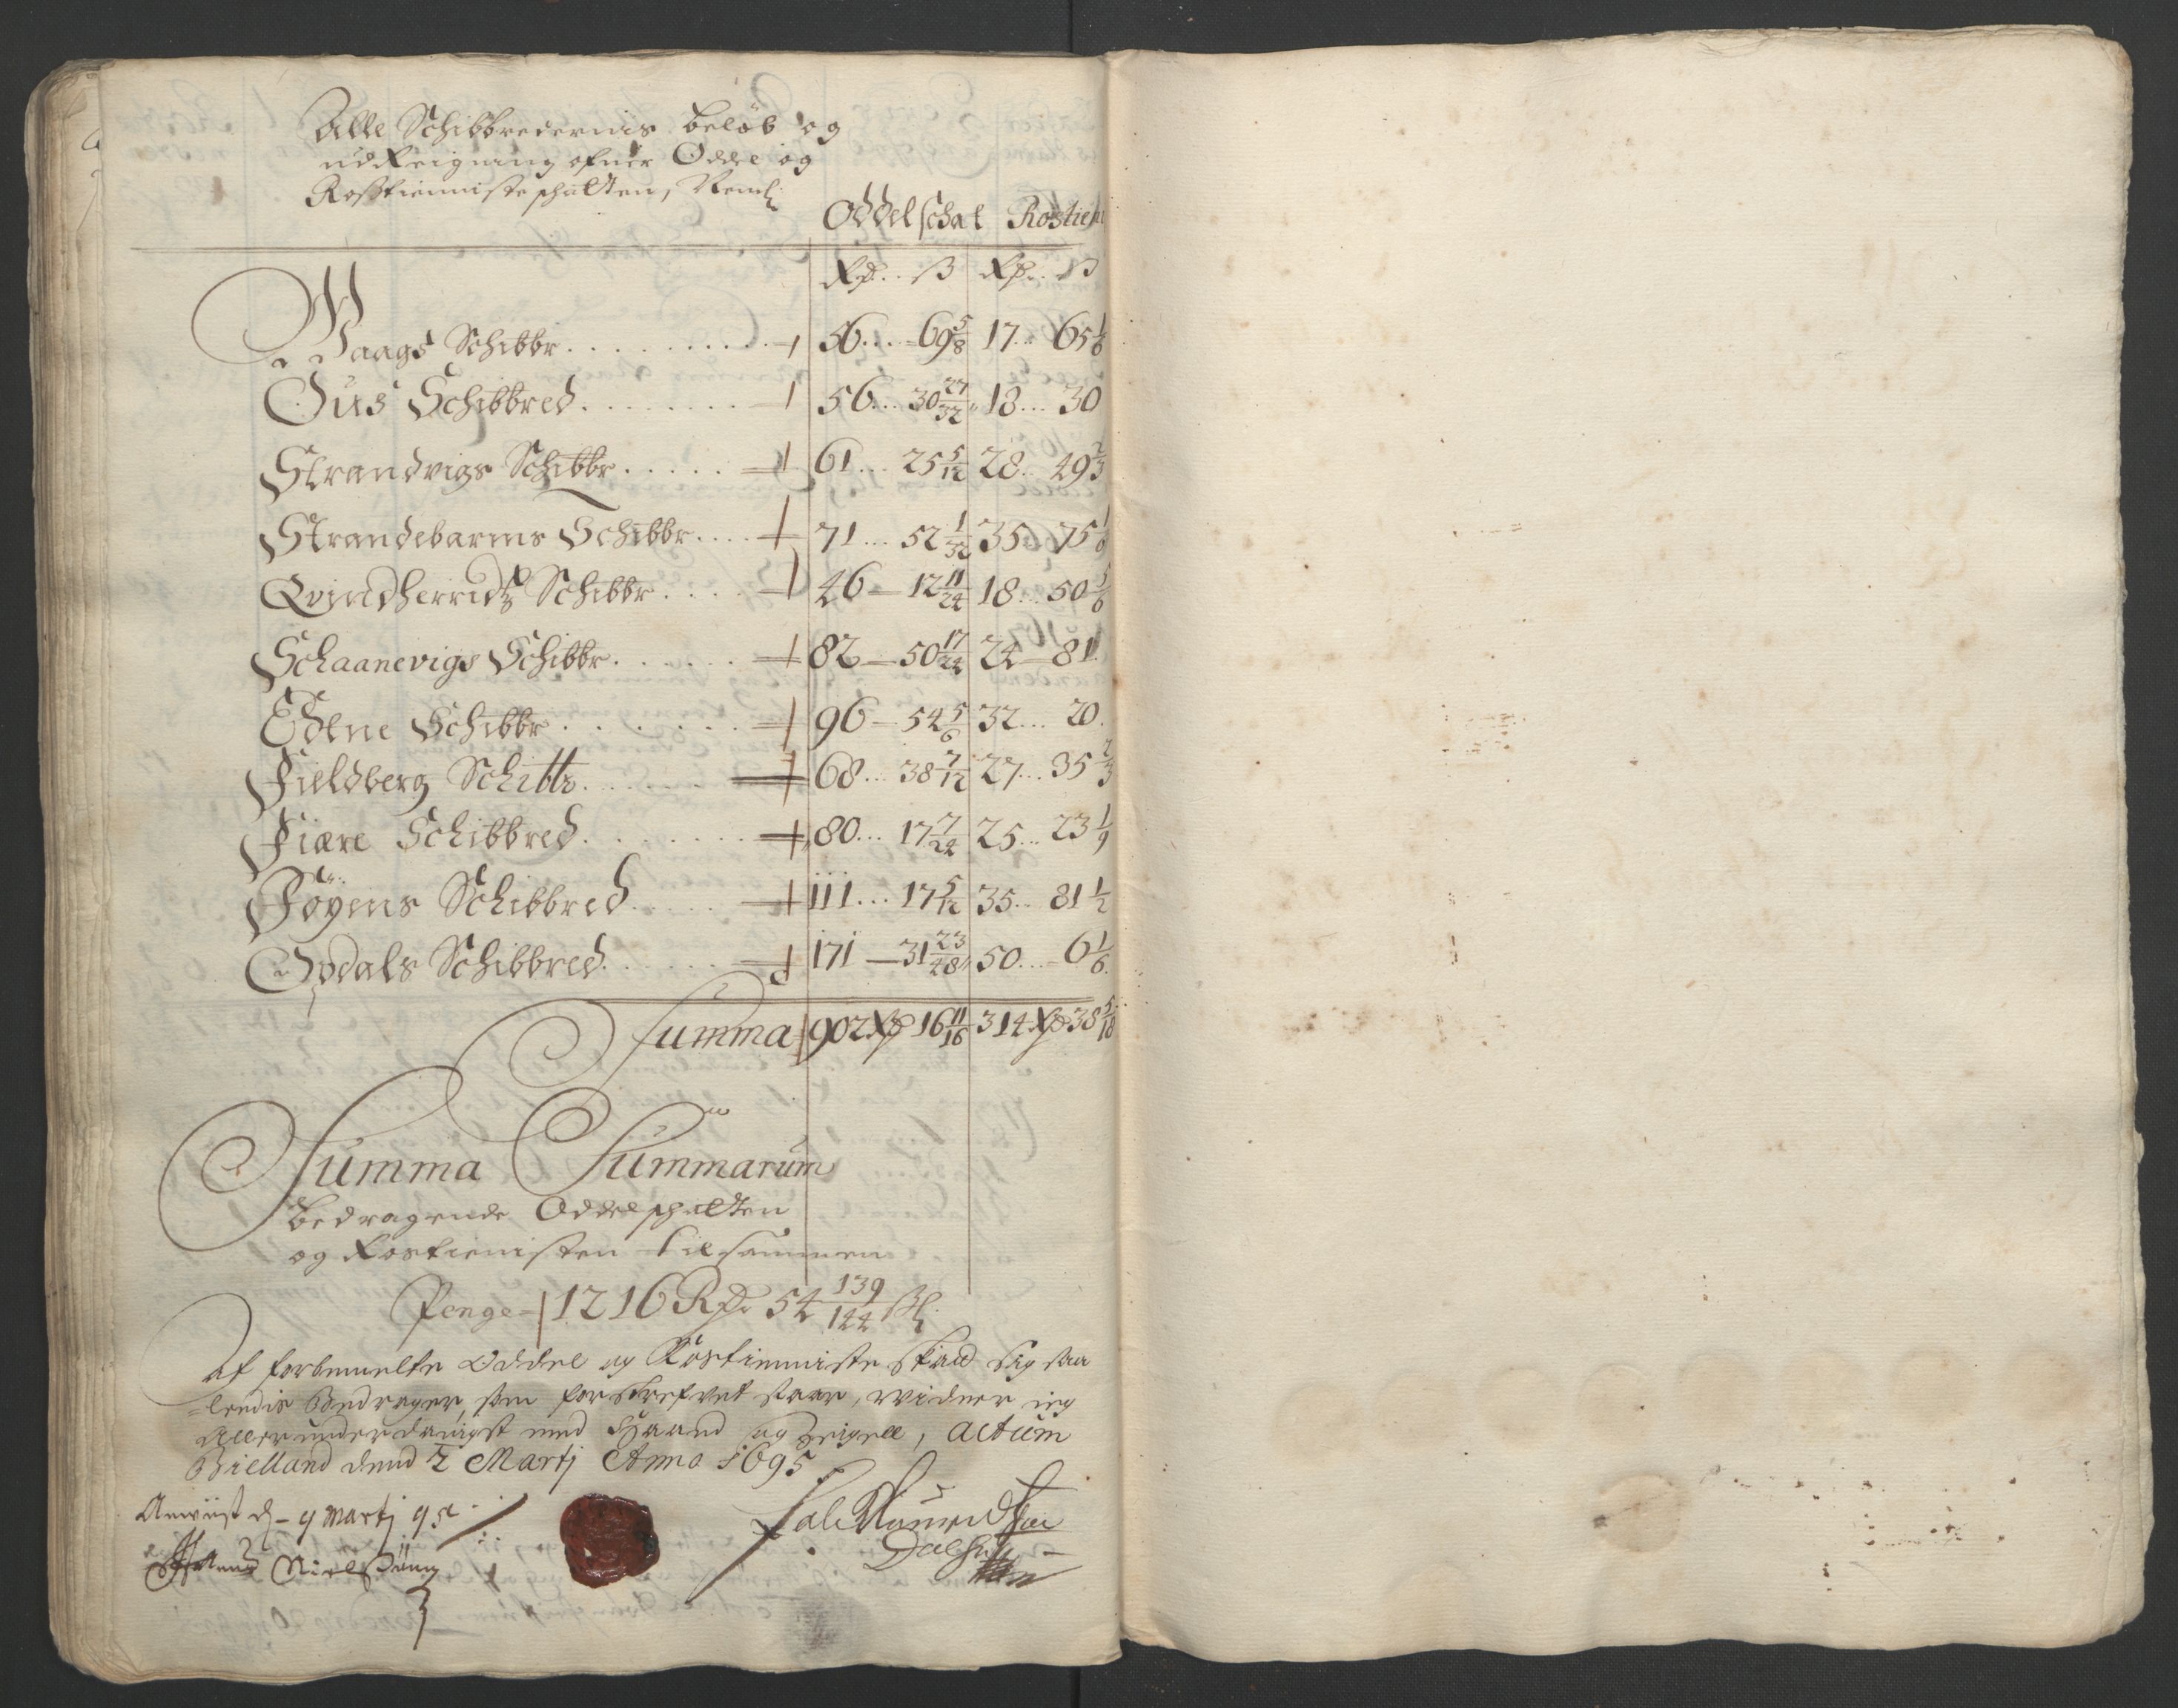 Alle Schibbredernis beløb og
udReigning ofuer Oddel og
Rosstienniste schatten, Neml:
Oddelschat Rostien
Rd . . ß Rd . . ß
Waags Schibbr. . . . . . . . . . 56 . . . . 69 5/8 17 . . 65 1/6
Ous Schibbred. . . . . . . . 56 . . . 30 27/32 18 . . . 30
Strandvigs Schibbr. . . . . . 61 . . . 25 5/12 28 . . 49 2/3
Strandebarms Schibbr. . . . 71 . . . 52 1/32 35 . . 75 1/6
Qvindherridz Schibbr. . . . 46 — 12 11/24 18 . . . 50 5/6
Schaanevigs Schibbr. . . . . . . 82 — 50 17/24 24 — 81
Edene Schibbr. . . . . . . 96 — 54 5/6 32 . . . 20.
Fieldberg Schibbr. . . . . . . 68 . . . 38 7/12 27 . . . 35 2/3
Fiære Schibbred. . . . . . . 80 . . . 17 7/24 25 . . . 23 1/9
Føyens Schibbred. . . . . 111 . . . 17 5/12 35 . . 81 1/2
Opdals Schibbred. . . . . . 171 — 31 23/48 50 . . . 6 1/6
Summa 902 Rd 16 11/16 314 Rd 38 5/18
Summa Summarum
bedragende Oddelschatten
og Rostienisten tilsammen
Penge = 1216 Rdr 54 139/144 ßl.
At forbemelte Oddel og Rostienniste skad sig saa
=ledis bedrager, som forskrefvet staar, vidner ieg
Allerunderdanigst med Haand og Zeigell, Actum
Gielland dend 2 Martj Anno 1695
Anviist d – 9 Martj 95
Nielsøn